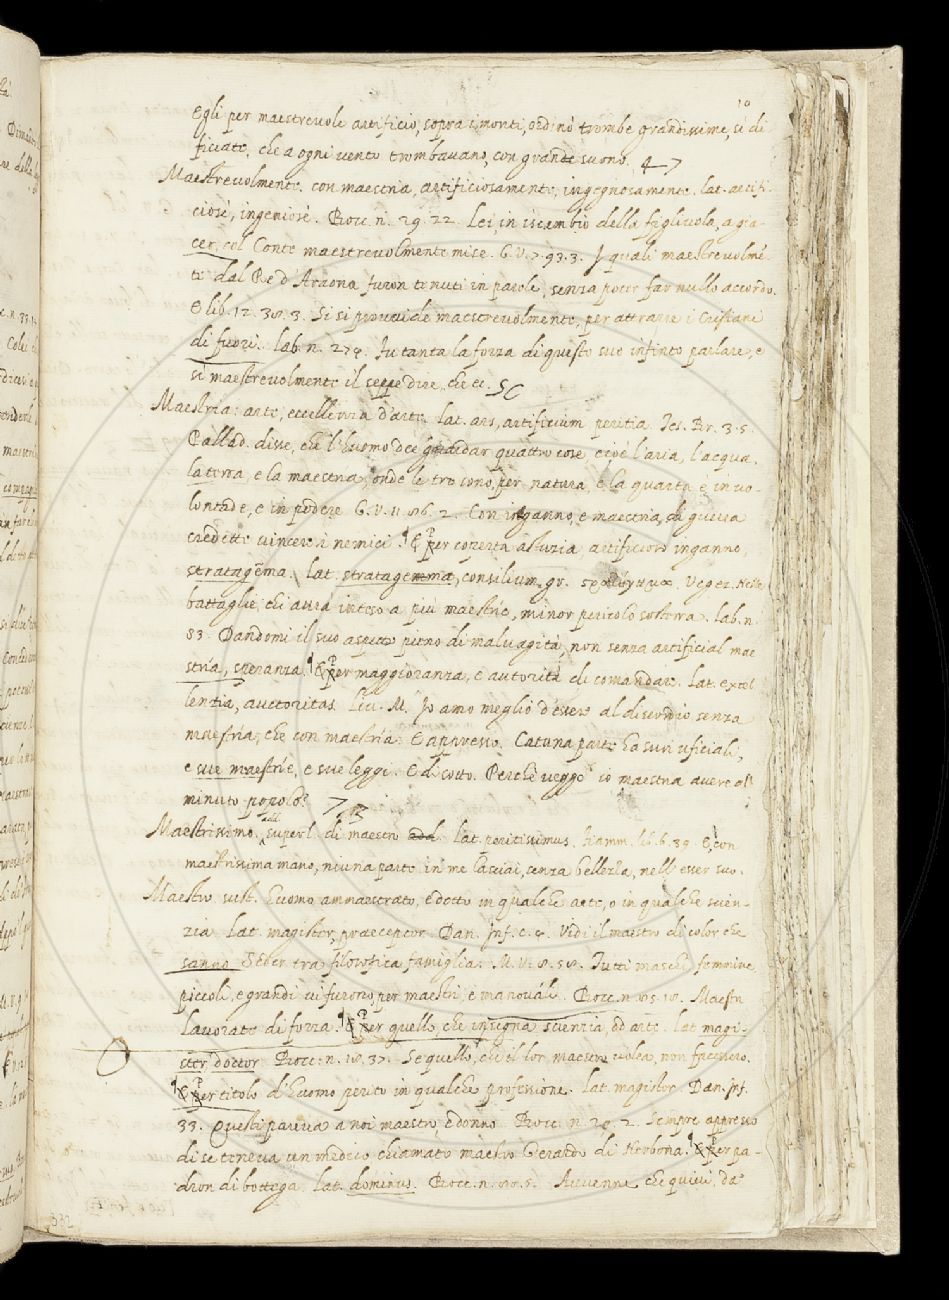 10
Egli per maestrevole artificio, sopra i monti, ordinò trombe grandissime, sì di
ficiate, che a ogni vento trombavano, con grande suono.
Maestrevolmente. con maestria, artificiosamente, ingegnosamente. lat. artifi-
ciosè, ingeniosè. Bocc. n. 29. 22. Lei, in iscambio della figliuola, a gia-
cer, col Conte maestrevolmente mise. G. V. 7. 93. 3. I quali maestrevolmē-
te dal Re d'Araona furon tenuti in parole, senza poter far nullo accordo.
E lib. 12. 38. 3. Si si provvide maestrevolmente, per attrarre i Cristiani
di fuori. lab. n. 279. Fu tanta la forza di questo suo infinto parlare, e
sì maestrevolmente il seppe dire, che ec.
Maestria: arte, eccellenza d'arte. lat. ars, artificium peritia. Tes. Br. 3. 5.
Pallad. disse, che l'huomo dee guardar quattro cose cioè l'aria, l'acqua,
la terra, e la maestria, onde le tre sono, per natura, e la quarta è in vo-
lontade, e in podere G. V. 11. 86. 2. Con inganno, e maestria, di guerra
credette vincere i nemici. ¶ E per coperta astuzia, artificioso inganno,
stratagēma. lat. stratagemma, consilium, gr. Vegez. Nelle
battaglie, chi avrà inteso a più maestrie, minor pericolo sosterrà. lab. n.
83. Dandomi il suo aspetto pieno di malvagità, non senza artificial mae
stria, speranza. ¶ E per maggioranza, e autorità di comandare. lat. excel
lentia, auctoritas. Liv. M. Io amo meglio d'essere al disunio senza
maestria, che con maestria. E appresso. Catuna parte ha suoi uficiali,
e sue maestrie, e sue leggi. E di sotto. Perchè veggo io maestria avere al
minuto popolo?
Maestrissimo. add. superl. di maestro add. lat. peritissimus. Fiamm. lib. 6. 39. E con
maestrissima mano, niuna parte in me lasciai, senza bellezza, nell'esser suo.
Maestro sust. huomo ammaestrato, e dotto in qualche arte, o in qualche scien-
zia. Lat. magister, praeceptor. Dan. Inf. c. 4. Vidi il maestro di color che
sanno Seder tra filosofica famiglia. M. V. 8. 58. Tutti maschi, femmine,
piccoli, e grandi vi furono, per maestri, e manovali. Bocc. n. 85. 18. Maestri
lavorare di forza. ¶ E per quello, che insegna scienzia, od arte. lat. magi-
ster, doctor. Bocc. n. 18. 37. Se quello, che il lor maestro volea, non facessero.
¶ E per titolo d'huomo perito in qualche professione. lat. magister. Dan. Inf.
33. Questi pareva a noi maestro, e donno. Bocc. n. 20. 2. Sempre appresso
di se teneva un medico chiamato maestro Gerardo di Nerbona. ¶ E per pa-
dron di bottega. lat. dominus. Bocc. n. 80. 5. Avvenne che quivi, da
332